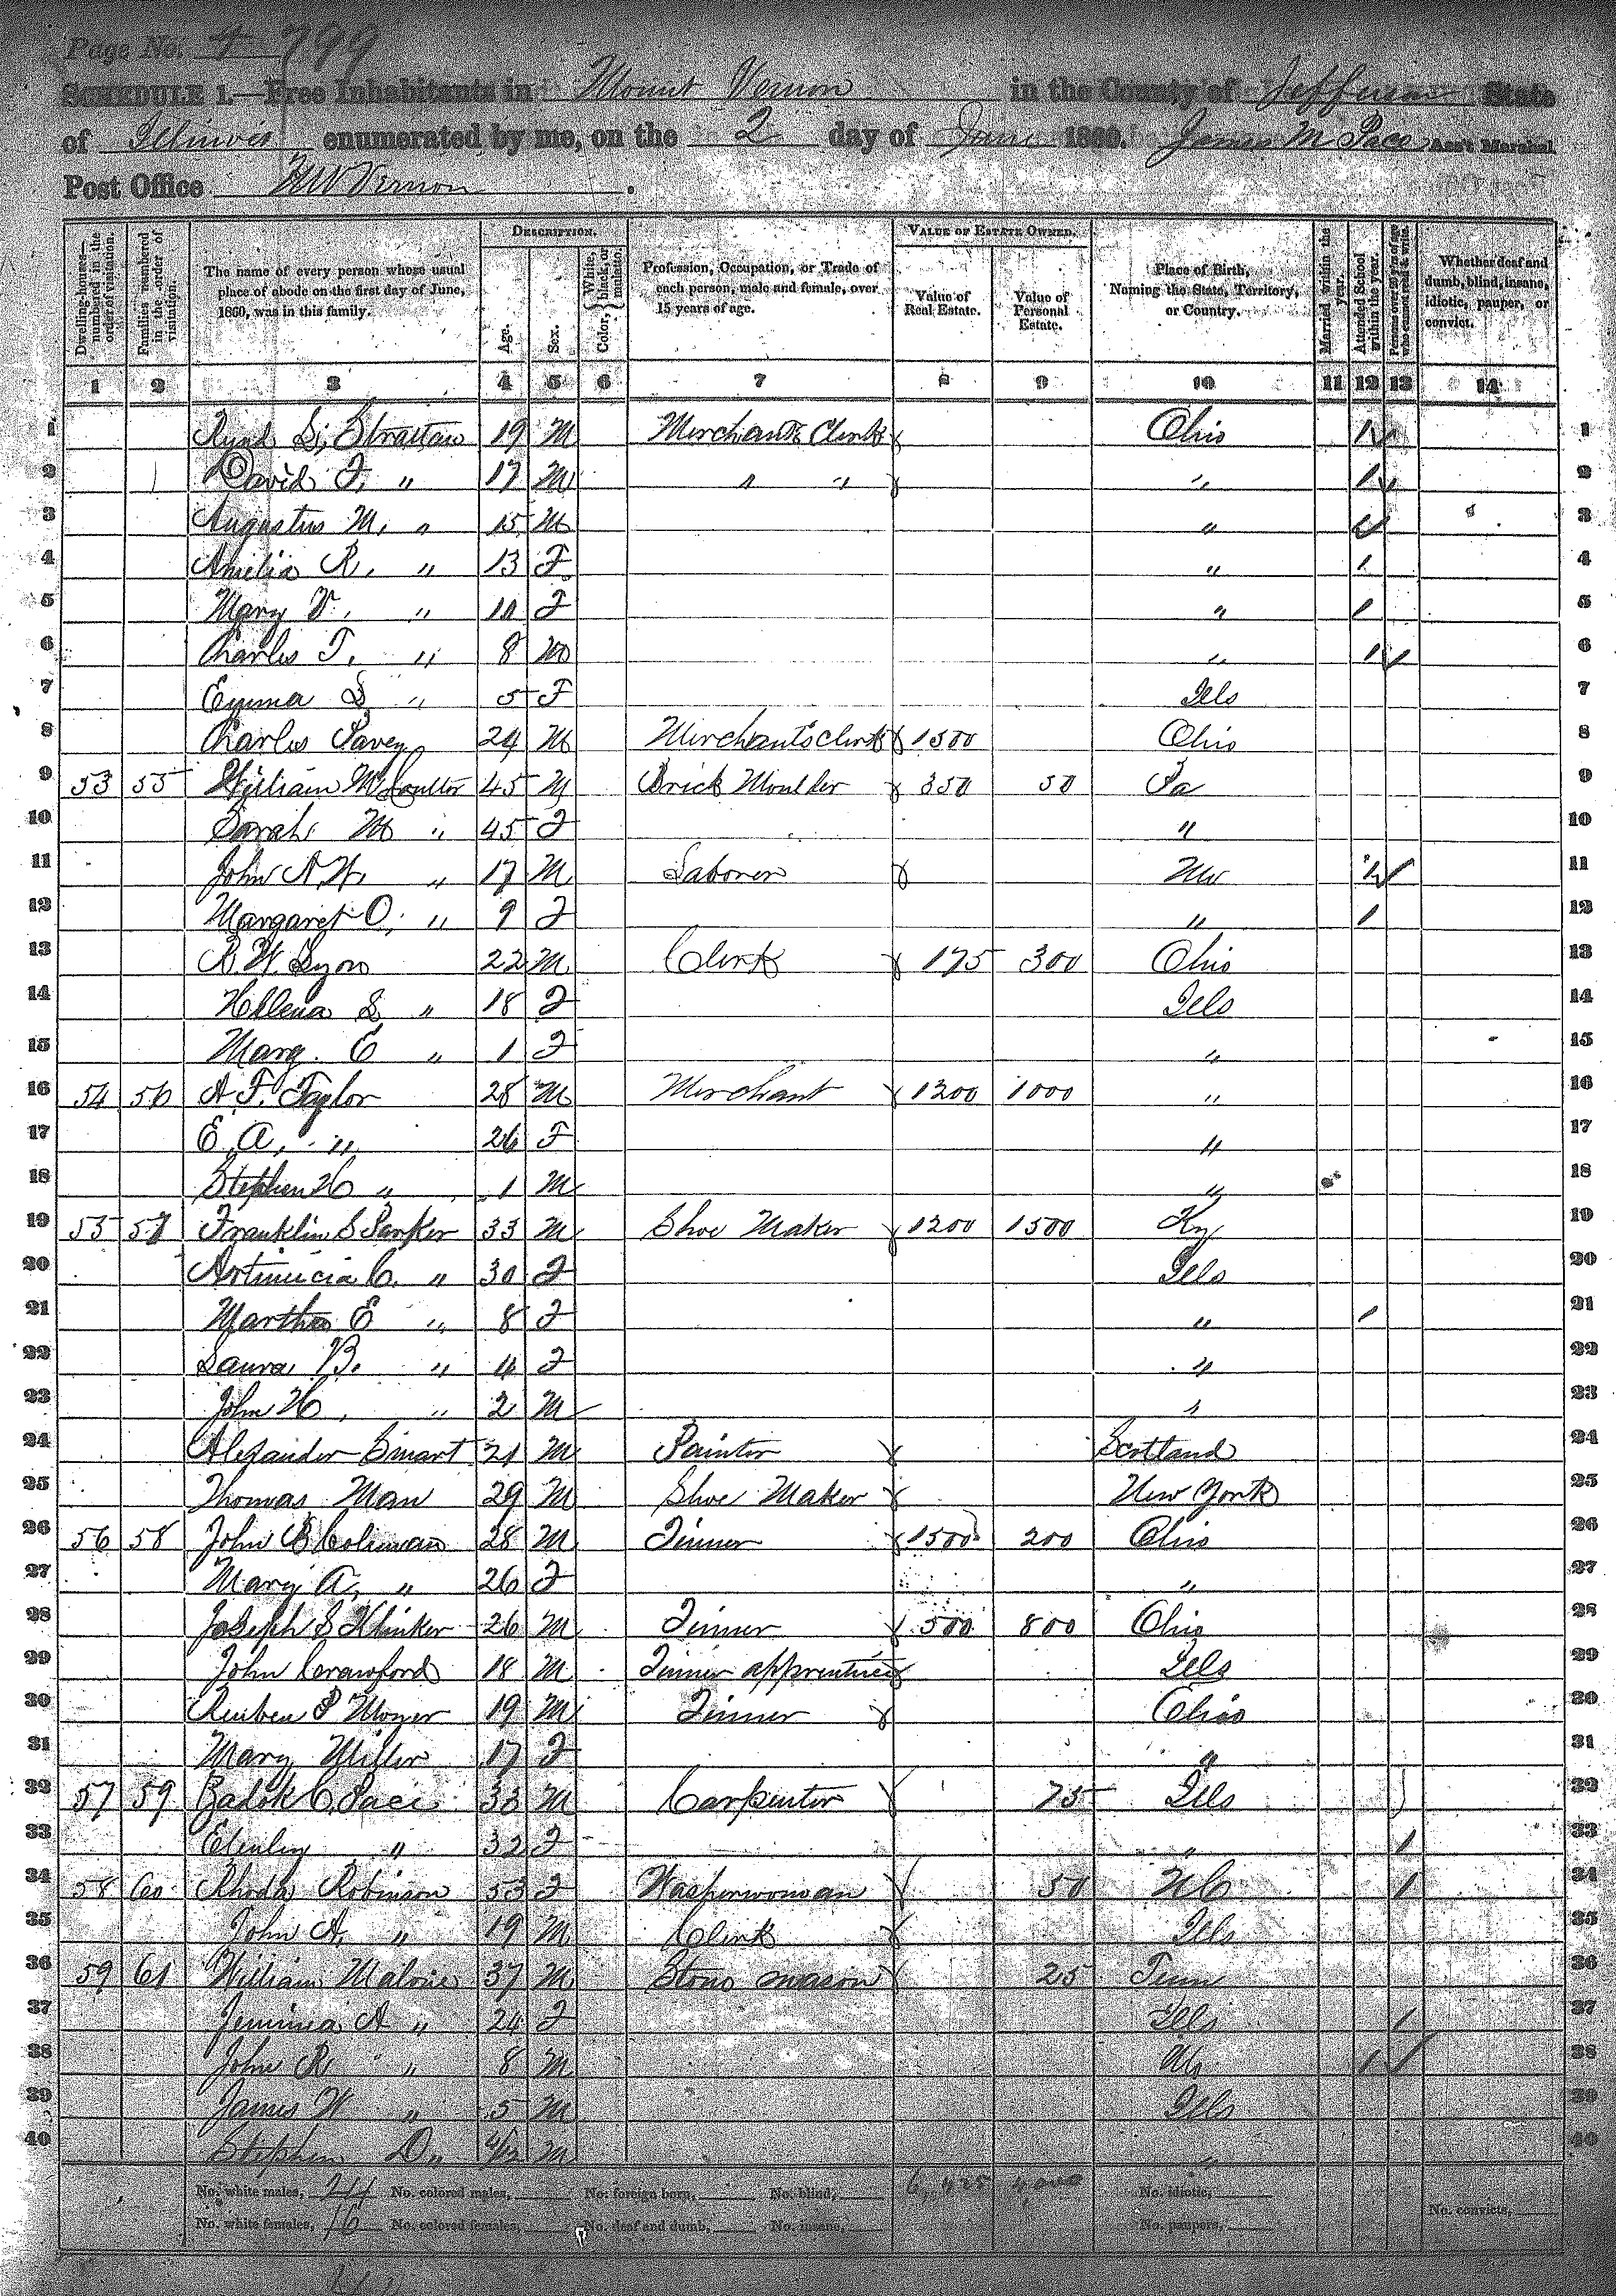 Page No. 4 799
SCHEDULE 1.—Free Inhabitants in Mount Vernon in the County of Jefferson State
of Illinois enumerated by me, on the 2 day of June 1860. James M Pace Ass't Marshal
Post Office Mt Vernon.
Dwelling-houses—numbered in the order of visitation. Families numbered in the order of visitation. The name of every person whose usual place of abode on the first day of June, 1860, was in this family. DESCRIPTION. Age. Sex. Color, {White, black, or mulatto. Profession, Occupation, or Trade of each person, male and female, over 15 years of age. VALUE OF ESTATE OWNED. Value of Real Estate. Value of Personal Estate. Place of Birth, Naming the State, Territory, or Country. Married within the year. Attended School within the year. Persons over 20 y'rs of age who cannot read & write. Whether deaf and dumb, blind, insane, idiotic, pauper, or convict.
1 2 3 4 5 6 7 8 9 10 11 12 13 14
1 S. Strattan 19 M Merchants Clerk Ohio 1 1
2 David T. " 17 M " " " 1 2
3 Augustus M. " 15 M " 1 3
4 Amelia R. " 13 F " 1 4
5 Mary V. " 10 F " 1 5
6 Charles T. " 8 M " 1 6
7 Emma S " 5 F Ills 7
8 Charles Pavey 24 M Merchants Clerk 1500 Ohio 8
9 53 55 William McCoulter 45 M Brick Moulder 350 50 Pa 9
10 Sarah M " 45 F " 10
11 John A.W. " 17 M Laborer 11
12 Margaret O. " 9 F " 1 12
13 R. W. Lyon 22 M Clerk 175 300 Ohio 13
14 Hellena S " 18 F Ills 14
15 Mary. E " 1 F " 15
16 54 56 A F. Taylor 28 M Merchant 1200 1000 " 16
17 E. A. " 26 F " 17
18 Stephen H " 1 M " 18
19 55 57 Franklin S Parker 33 M Shoe Maker 1200 1500 Ky 19
20 Artimicia C. " 30 F Ills 20
21 Martha E " 8 F " 1 21
22 Laura B. " 4 F " 22
23 John H. " 2 M " 23
24 Alexander Smart 21 M Painter Scotland 24
25 Thomas Man 29 M Shoe Maker New York 25
26 56 58 John B Coleman 28 M Tinner 1500 200 Ohio 26
27 Mary A. " 26 F " 27
28 Joseph S Klinker 26 M Tinner 500 800 Ohio 28
29 John Crawford 18 M Tinner apprentice Ills 29
30 Reuben P Moyer 19 M Tinner Ohio 30
31 Mary Miller 17 F " 31
32 57 59 Zadok C. Pace 33 M Carpenter 75 Ills 32
33 " 32 F " 1 33
34 58 60 Rhoda Robinson 53 F Washerwoman 50 NC 1 34
35 John A. " 19 M Clerk Ills 35
36 59 61 William Malone 37 M Stone mason 25 Tenn 36
37 Jemima A " 24 F Ills 1 37
38 John R " 8 M 1 38
39 James W " 5 M Ills 39
40 Stephen D " M " 40
No. white males, 24 No. colored males, No. foreign born, No. blind, 6,425 4,000 No. idiotic,
No. white females, 16 No. colored females, No. deaf and dumb, No. insane, No. paupers, No. convicts,